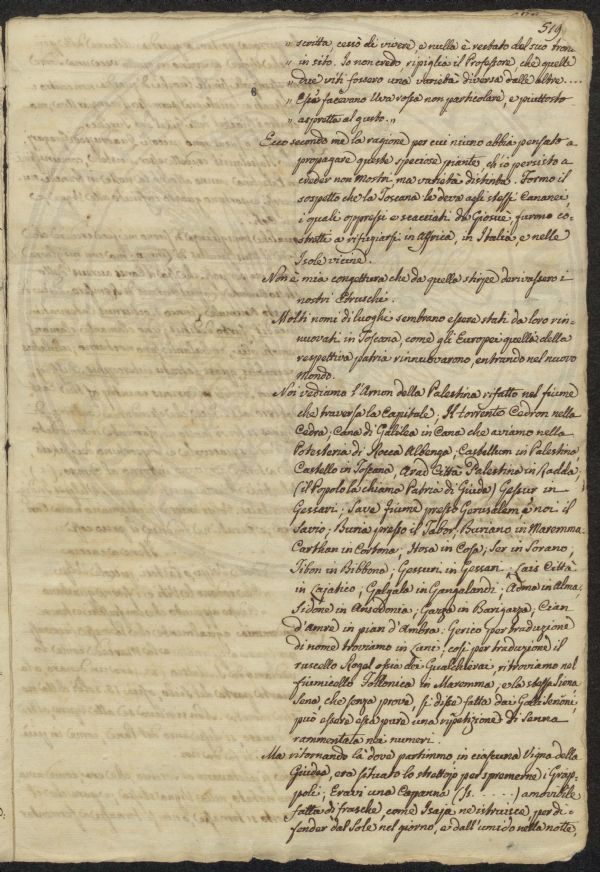 519
„ scritta, cessò di vivere, e nulla è restato del suo tron„
„ in sito. Io non credo ripiglia il Professore che quelle
„ due viti fossero una varietà diversa dalle altre....
„ Essa facevano Uva rossa non particolare, e piuttosto
„ aspretta al gusto.„
Ecco secondo me la ragione per cui niuno abbia pensato a
propagare queste speciose piante, ch'io persisto a
creder non Mostri, ma varietà distinte. Formo il
sospetto che la Toscana le deva agli stessi Cananei,
i quali oppressi e scacciati da Giosuè, furono co-
stretti a rifugiarsi in Affrica, in Italia e nelle
Isole vicine.
Non è mia congettura che da quella stirpe derivassero i
nostri Etruschi.
Molti nomi di luoghi sembrano essere stati da loro rin-
nuovati in Toscana, come gli Europei quelli della
respettiva patria rinnuovarono, entrando nel nuovo
Mondo.
Noi vediamo l'Arnon della Palestina rifatto nel fiume
che traversa la Capitale; Il torrente Cedron nella
Cedra; Cana di Galilea in Cana che aviamo nella
Potesteria di Rocca Albenga; Castellum in Palestina,
Castello in Toscana, Arad Città Palestina in Radda
(il Popolo la chiama Patria di Giuda) Gessur in
Gessari; Save fiume presso Gerusalem è noi il
Savio; Buria presso il Tabor, Buriano in Maremma.
Carthan in Cortona; Hosa in Cosa; Ser in Sorano,
Tibon in Bibbona; Gessuri in Gessari; Lais Città
in Lajatico; Galgala in Gangalandi; Adma in Alma,
Sidone in Ansedonia; Gazza in Barigazza; Cian
d'Amre in pian d'Ambra. Gerico per traduzione
di nome troviamo in Luni; così per traduzione il
ruscello Rogel ossia dei Gualchierai ritroviamo nel
fiumicello Follonica in Maremma; e la stessa Siena
Sena, che senza prove, si disse fatta dai Galli Senoni,
può essere essa pure una ripetizione di Senna
rammentata nei numeri.
Ma ritornando là dove partimmo, in ciascuna Vigna della
Giudea, era situato lo strettojo per spremerne i Grap-
poli; Eravi una Capanna (Is. ......) amovibile
fatta di frasche, come Isaja ne istruisce per di-
fender dal Sole nel giorno, e dall'umido nella notte,